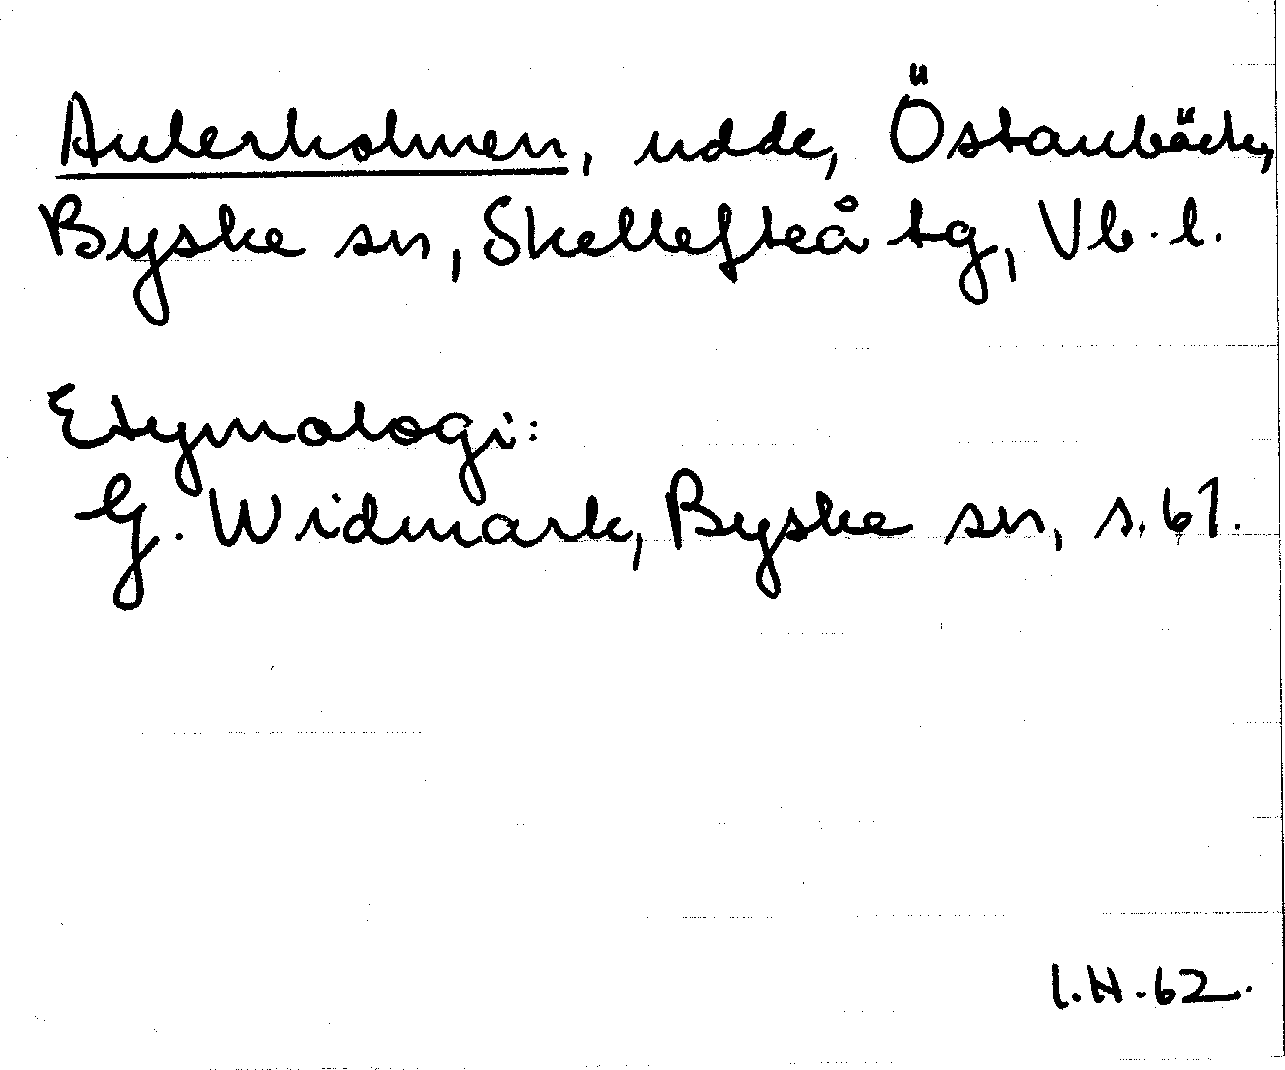 Ankerholmen, udde, Östanbäck,
Byske sn, Skellefteå tg, Vb. l.
Etymologi:
G. Widmark, Byske sn, s. 61.
I.H.62.